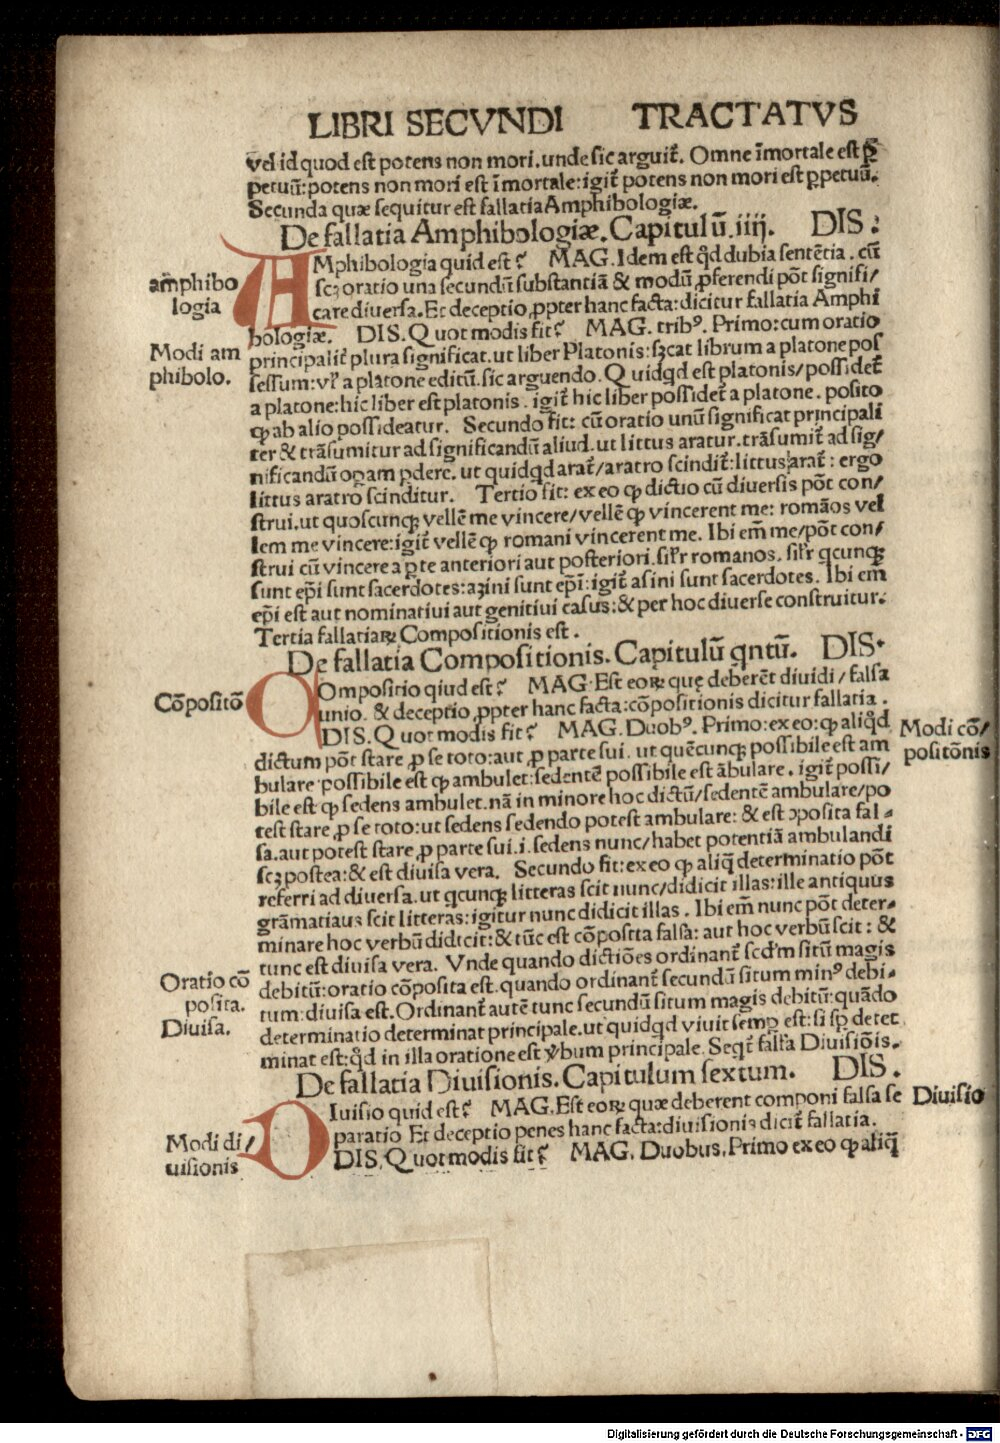 LIBRI SECVNDI TRACTATVS
vel id quod est potens non mori. unde sic arguit̃. Omne ĩmortale est ꝑ
petuũ: potens non mori est ĩmortale: igit̃ potens non mori est ꝑpetuũ.
Secunda quæ sequitur est fallatia Amphibologiæ.
De fallatia Amphibologiæ. Capitulũ. iiij. DIS:
AMphibologia quid est? MAG. Idem est qđ dubia sentẽtia. cũ
scꝫ oratio una secundũ substantiã & modũ ꝓferendi põt signifi/
care diuersa. Et deceptio ꝓpter hanc facta: dicitur fallatia Amphi
bologiæ. DIS. Quot modis fit? MAG. tribꝰ. Primo: cum oratio
principalit̃ plura significat. ut liber Platonis: sꝫcat librum a platone pos
sessum: vľ a platone editũ. sic arguendo. Quidqd est platonis/ possidet̃
a platone: hic liber est platonis. igit̃ hic liber possidet̃ a platone. posito
ꝙ ab alio possideatur. Secundo fit: cũ oratio unũ significat principali
ter & trãsumitur ad significandũ aliud. ut littus aratur. trãsumit̃ ad sig/
nificandũ oꝑam ꝑdere. ut quidqd arat̃/ aratro scindit̃: littus arat̃: ergo
littus aratro scinditur. Tertio fit: ex eo ꝙ dictio cũ diuersis põt con/
strui. ut quoscunqꝫ vellẽ me vincere/ vellẽ ꝙ vincerent me: romãos vel
lem me vincere: igit̃ vellẽ ꝙ romani vincerent me. Ibi em̃ me/ põt con/
strui cũ vincere a ꝑte anteriori aut posteriori. sil'r romanos. sil'r qcunqꝫ
sunt ep̃i sunt sacerdotes: aꝫini sunt ep̃i: igit̃ asini sunt sacerdotes. Ibi em̃
ep̃i est aut nominatiui aut genitiui casus: & per hoc diuerse construitur.
Tertia fallatiaꝝ Compositionis est.
De fallatia Compositionis. Capitulũ qntũ. DIS.
COmpositio qiud est? MAG. Est eoꝝ quę deberẽt diuidi/ falsa
unio. & deceptio ꝓpter hanc facta: cõpositionis dicitur fallatia.
DIS. Quot modis fit? MAG. Duobꝰ. Primo: ex eo: ꝙ aliqd
dictum põt stare ꝓ se toto: aut ꝓ parte sui. ut quẽcunqꝫ possibile est am
bulare possibile est ꝙ ambulet: sedentẽ possibile est ãbulare. igit̃ possi/
bile est ꝙ sedens ambulet. nã in minore hoc dictũ/ sedentẽ ambulare/ po
test stare ꝓ se toto: ut sedens sedendo potest ambulare: & est ↄposita fal-
sa. aut potest stare ꝓ parte sui. i. sedens nunc/ habet potentiã ambulandi
scꝫ postea: & est diuisa vera. Secundo fit: ex eo ꝙ aliq̃ determinatio põt
referri ad diuersa. ut qcunqꝫ litteras scit nunc/ didicit illas: ille antiquus
grãmatiaus scit litteras: igitur nunc didicit illas. Ibi em̃ nunc põt deter-
minare hoc verbũ didicit: & tũc est cõposita falsa: aut hoc verbũ scit: &
tunc est diuisa vera. Vnde quando dictiões ordinant̃ scd'm sitũ magis
debitũ: oratio cõposita est. quando ordinant̃ secundũ situm minꝰ debi-
tum: diuisa est. Ordinant̃ autẽ tunc secundũ situm magis debitũ: quãdo
determinatio determinat principale. ut quidqd viuit semꝑ est: si sꝑ deter
minat est: qđ in illa oratione est ꝟbum principale. Seqt̃ fall'a Diuisiõis.
De fallatia Diuisionis. Capitulum sextum. DIS.
DIuisio quid est? MAG. Est eoꝝ quæ deberent componi falsa se
paratio Et deceptio penes hanc facta: diuisionis dicit̃ fallatia.
DIS. Quot modis fit? MAG. Duobus. Primo ex eo ꝙ aliq̃
amphibo
logia
Modi am
phibolo.
Cõpositõ
Modi cõ/
positõnis
Oratio cõ
posita.
Diuisa.
Diuisio
Modi di/
uisionis
Digitalisierung gefördert durch die Deutsche Forschungsgemeinschaft - DFG